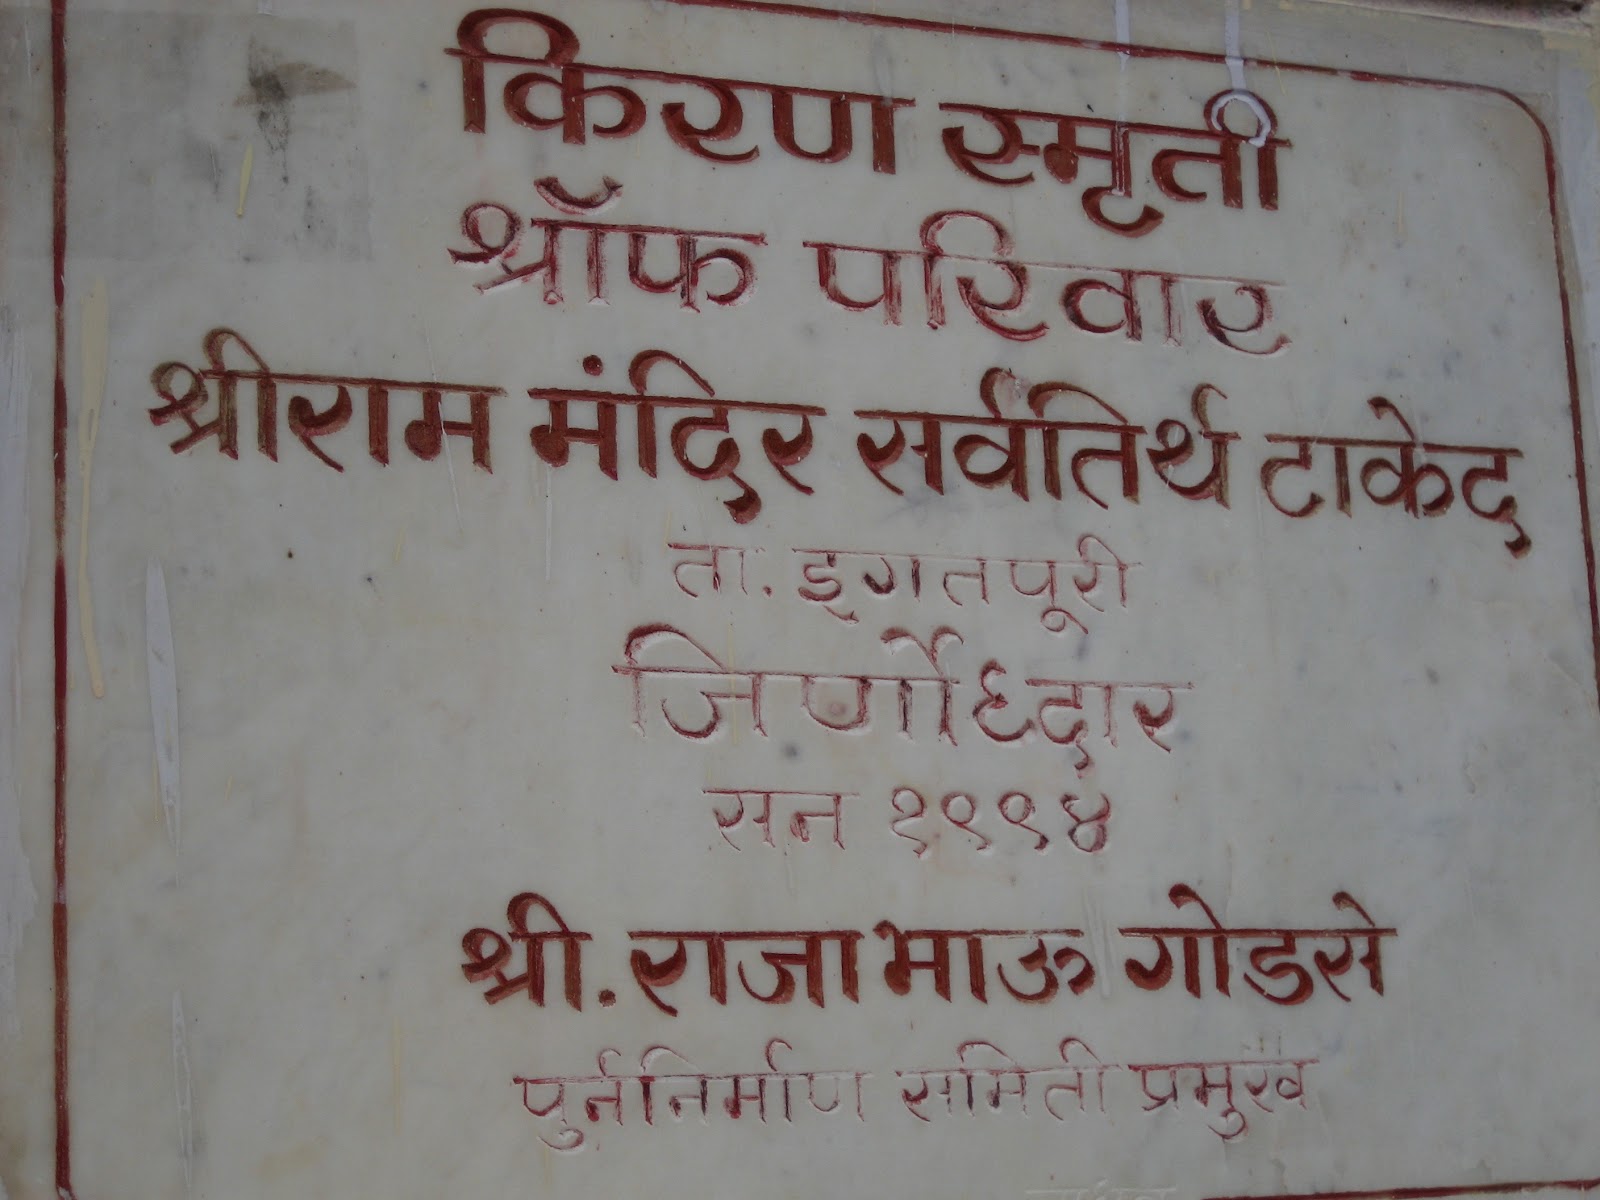 किरण स्मृती
श्रॉफ परिवार
श्रीराम मंदिर सर्वतिर्थ टाकेद
ता. इगतपूरी
जिर्णोध्दार
सन १९९४
श्री. राजाभाऊ गोडसे
पुर्ननिर्माण समिती प्रमुख